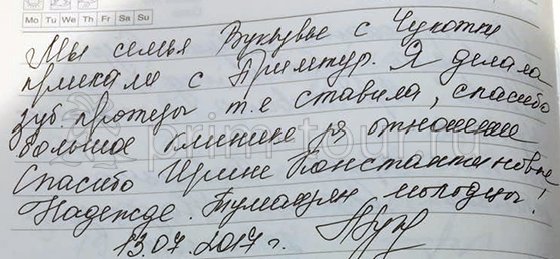 Mo Tu We Th Fr Sa Su
Мы семья Вуквувье с Чукотки
приехали с Примтур. Я делала
зуб. протезы т.е ставила, спасибо
большое клинике за отношение
Спасибо Ирине Константиновне,
Надежде. Тумашян молодцы.
13.07.2017г.
prim-tour.ru